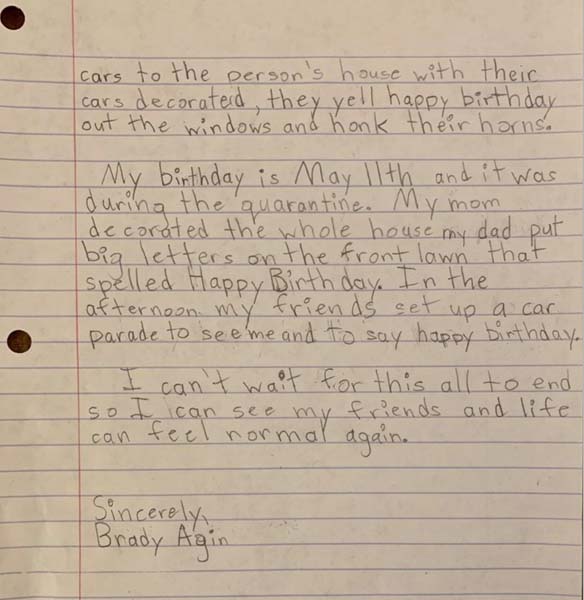 cars to the person's house with their
cars decorated, they yell happy birthday
out the windows and honk their horns.
My birthday is May 11th and it was
during the quarantine. My mom
decorated the whole house my dad put
big letters on the front lawn that
spelled Happy Birthday. In the
afternoon my friends set up a car
parade to see me and to say happy birthday.
I can't wait for this all to end
so I can see my friends and life
can feel normal again.
Sincerely,
Brady Agin